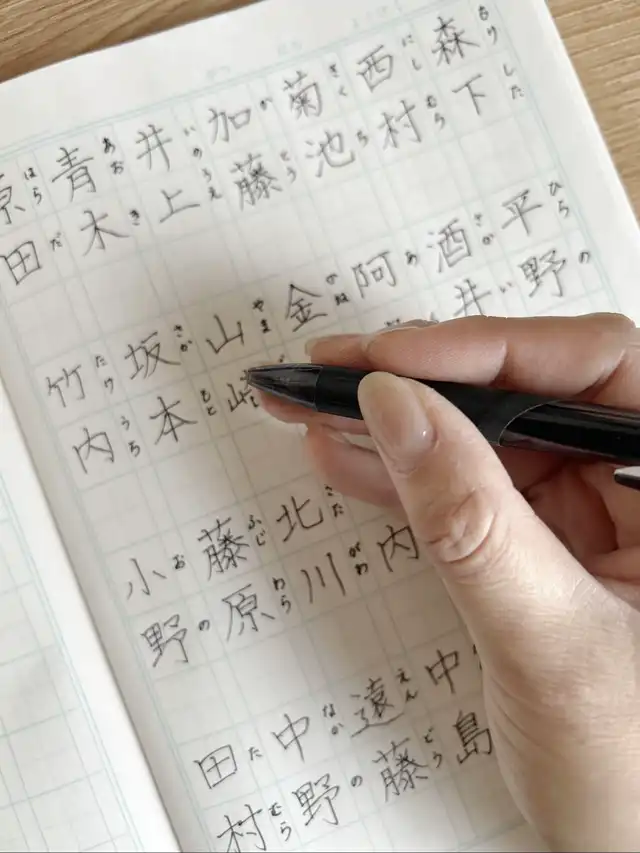 森下
もりした
西村
にしむら
菊池
きくち
加藤
かとう
井上
いのうえ
青木
あおき
原田
はらだ
平野
ひらの
酒井
さかい
阿
あ
金
かね
山
やま
坂本
さかもと
竹内
たけうち
内
北川
きたがわ
藤原
ふじわら
小野
おの
中島
遠藤
えんどう
中野
なかの
田村
たむら